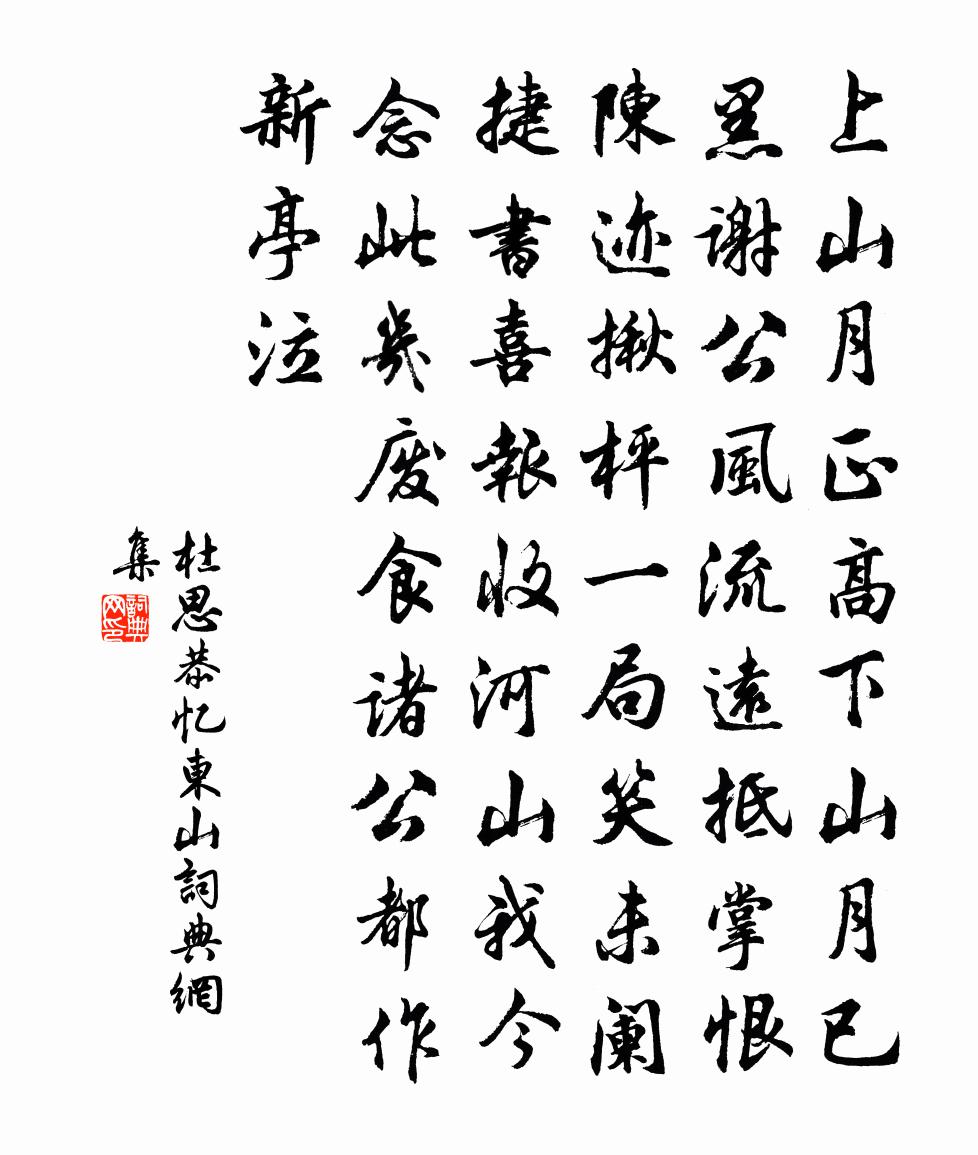 上山月正高下山月已
黑謝公風流遠抵掌恨
陳迹揪枰一局笑未闌
捷書喜報收河山我今
念此幾廢食諸公都作
新亭泣
杜思恭忆東山詞典網
集
詞典
网印